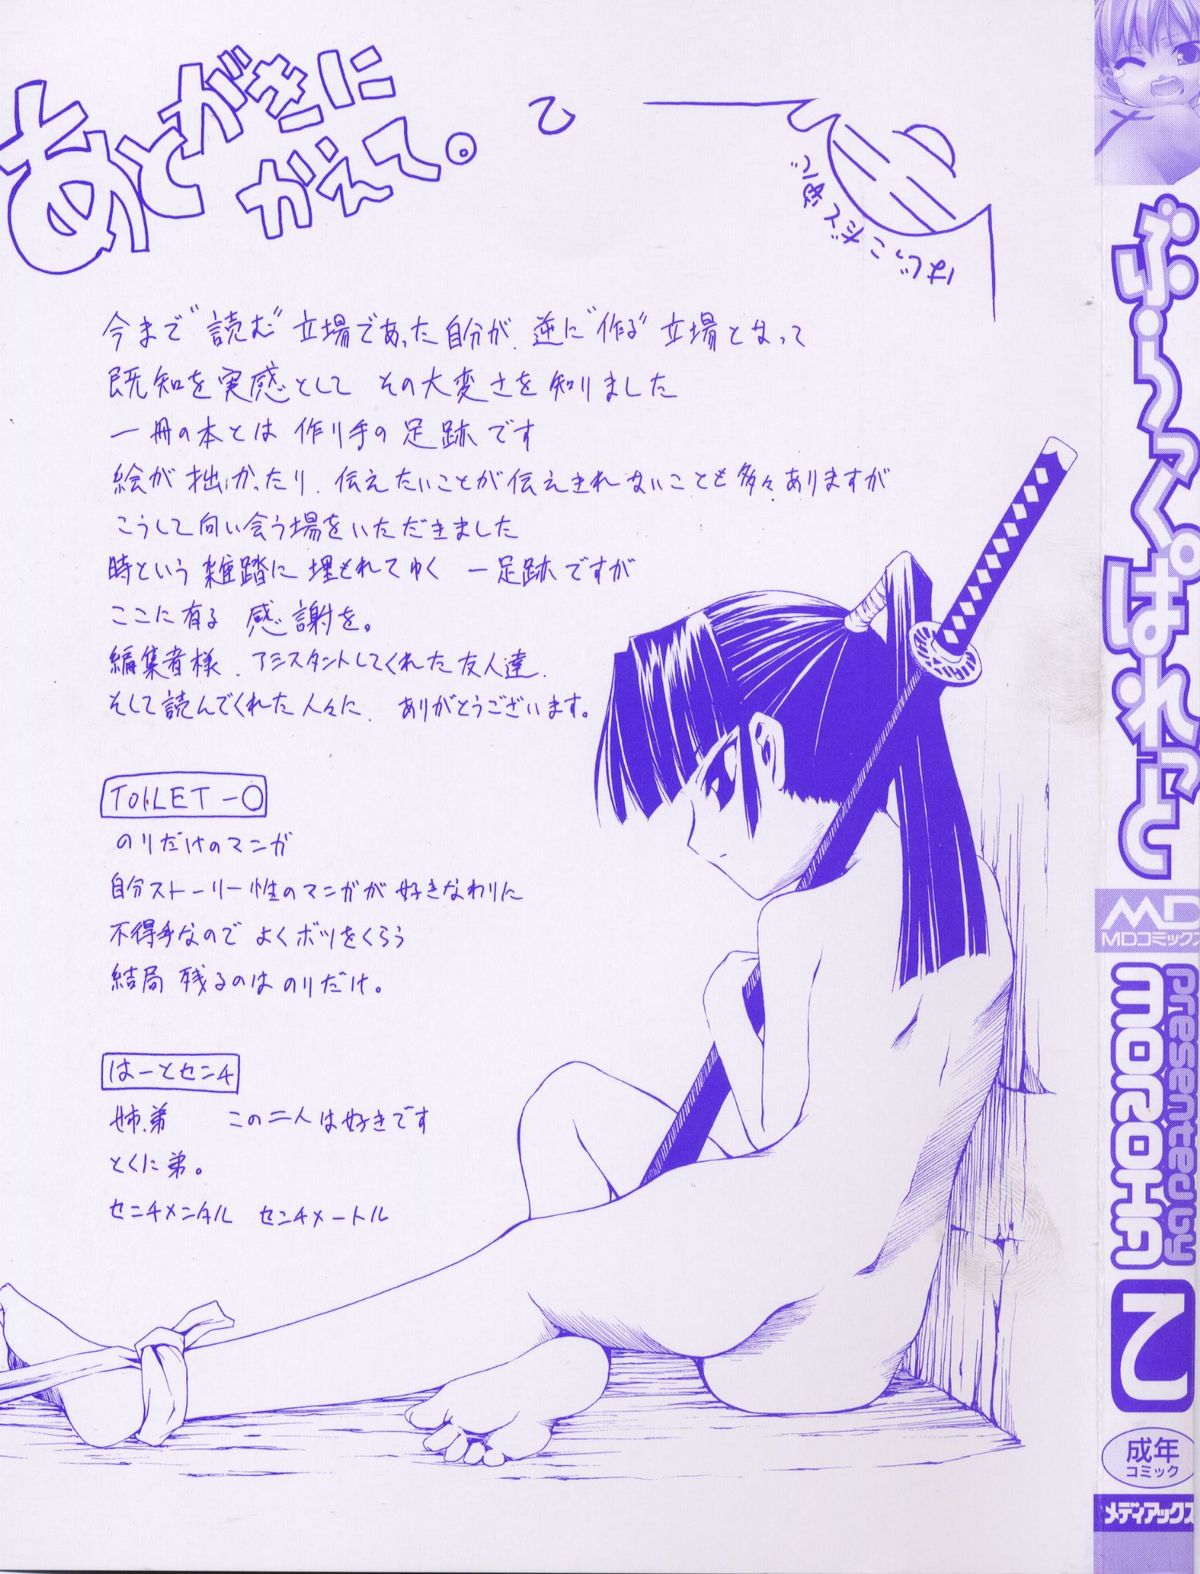 あとがきに
かえて。
乙
今まで“読む”立場であった自分が、逆に“作る”立場となって
既知を実感として その大変さを知りました
一冊の本とは 作り手の足跡です
絵が拙かったり、伝えたいことが伝えきれないことも多々ありますが
こうして向い会う場をいただきました
時という 雑踏に 埋もれてゆく 一足跡ですが
ここに有る 感謝を。
編集者様、アシスタントしてくれた友人達、
そして読んでくれた人々に、ありがとうございます。
TOILET-○
のりだけのマンガ
自分ストーリー性のマンガが好きなわりに
不得手なので よくボツをくらう
結局 残るのは のりだけ。
はーとセンチ
姉、弟 この二人は好きです
とくに弟。
センチメンタル センチメートル
ぶらっくぱれっと
MD
MDコミックス
presented by
MOROHA
乙
成年
コミック
メディアックス